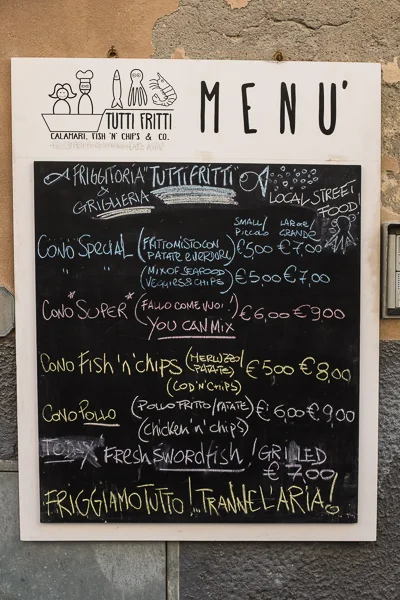 TUTTI FRITTI
CALAMARI, FISH 'N' CHIPS & CO.
MENU'
FRIGGITORIA "TUTTI FRITTI"
& GRIGLIERIA
LOCAL STREET FOOD
SMALL/ PICCOLO LARGE/ GRANDE
CONO SPECIAL (FRITTO MISTO CON PATATE E VERDURE) €5,00 €7,00
" " (MIX OF SEAFOOD VEGGIES & CHIPS) €5,00 €7,00
CONO "SUPER" (FALLO COME VUOI!) €6,00 €9,00
YOU CAN MIX
CONO FISH 'n' CHIPS (MERLUZZO/ PATATE) €5,00 €8,00
(COD 'N' CHIPS)
CONO POLLO (POLLO FRITTO/PATATE) €6,00 €9,00
(chicken 'n' chips)
TODAY FRESH SWORDFISH! GRILLED
€7,00
FRIGGIAMO TUTTO!.. TRANNE L'ARIA!